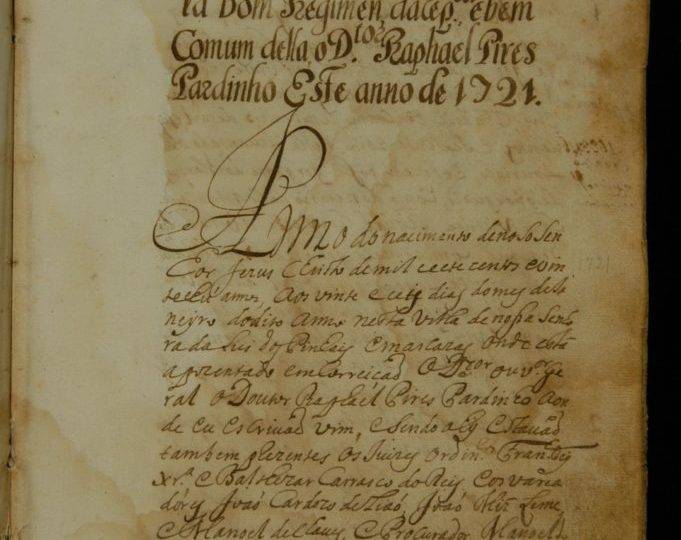 ra bom Regimen, dacep.ᶜᵃ ebem
Comum della, o D.ᵗᵒʳ Raphael Pires
Pardinho Este anno de 1721.
Anno do nacimento denoso Sen
Eor Jezus Christo de mil e cete centos e vin
te e hũ annos, Aos vinte e cete dias do mes de Ja
neyro do dito Anno nesta Villa de nossa Senhr
ra da Lus dos Pinhais Em cazas onde está
apozentado em Correição O D.ᵗᵒʳ ouv.ᵒʳ ge
ral O Doutor Raphael Pires Pardinho Aon
de Eu Escrivão vim, e Sendo ahy Estavão
tambem prezentes Os Juizes Ordin.ᵒˢ Fran.ᶜᵒ
Xr.ᵃ e Balthezar Carrasco do Reis e os varea
dores João Cardozo de Lião, João Miz Leme
e Manoel de Chaves, e Procurador Manoel
1721